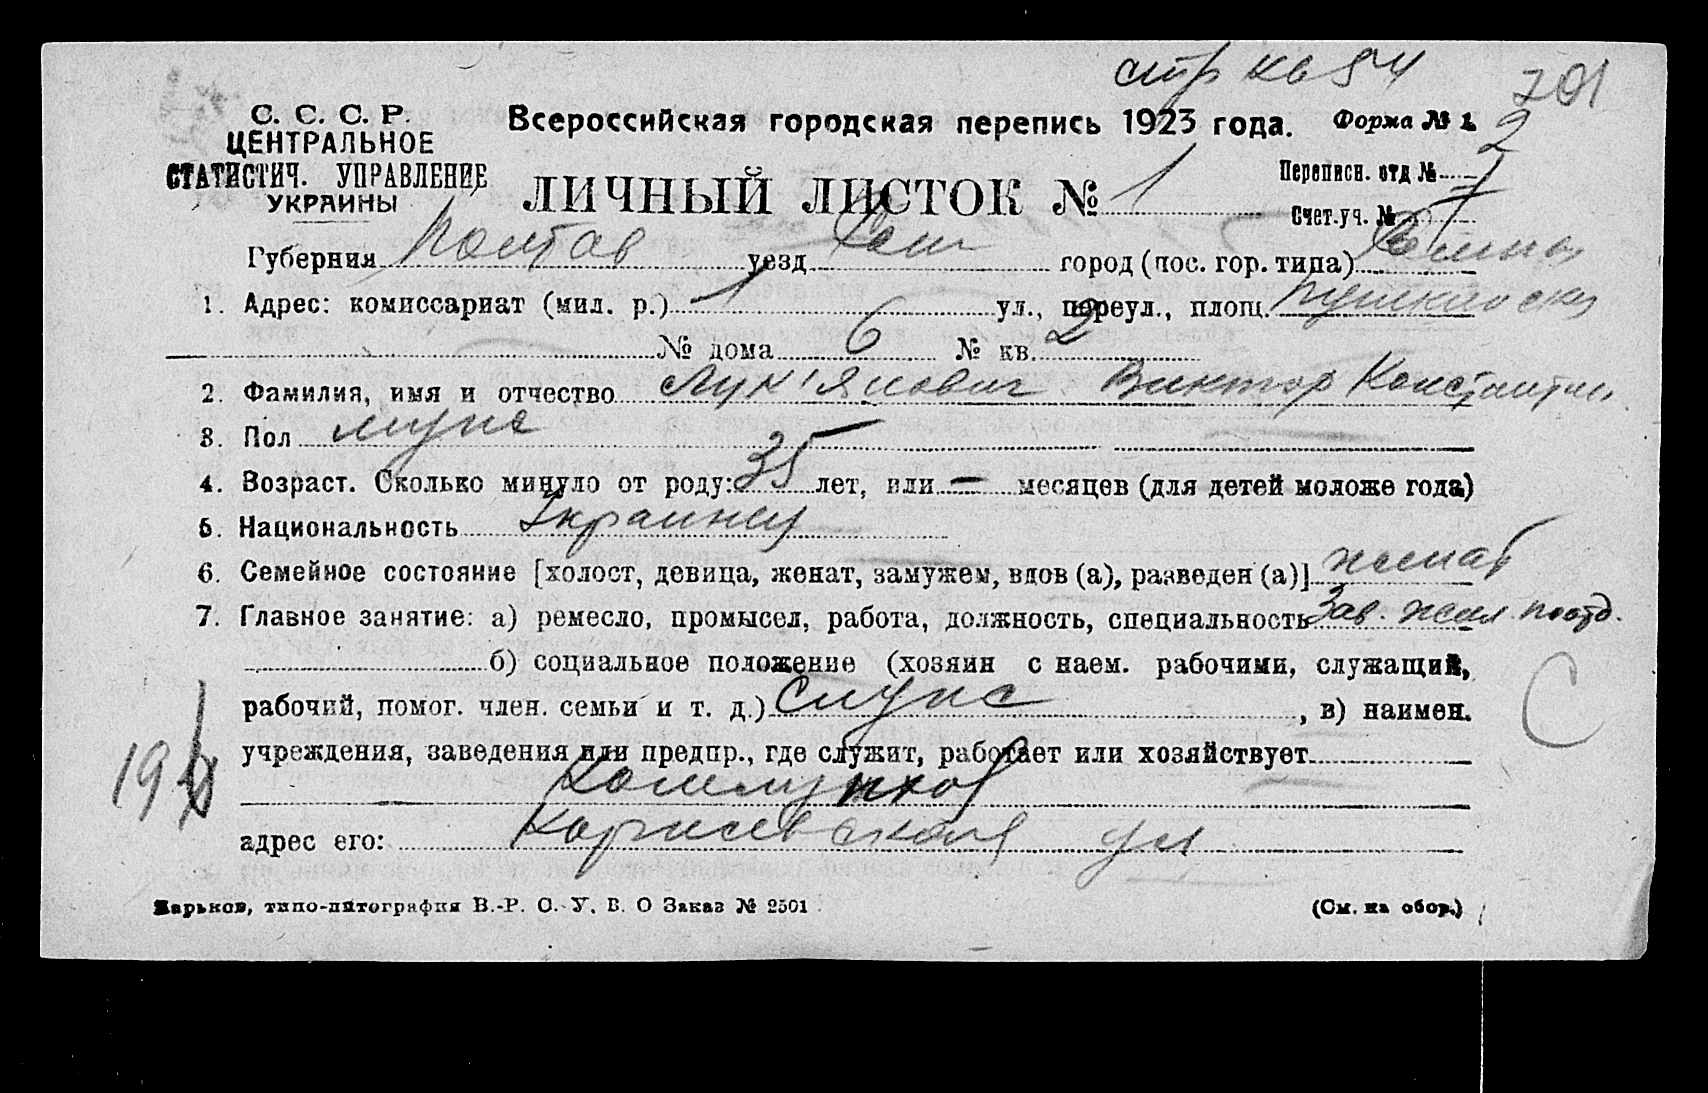 стр кв 94
701
С. С. С. Р.
ЦЕНТРАЛЬНОЕ
СТАТИСТИЧ. УПРАВЛЕНИЕ
УКРАИНЫ
Всероссийская городская перепись 1923 года. Форма № 1.
ЛИЧНЫЙ ЛИСТОК № 1
Переписн. отд № 2
Счет.уч. № 7
Губерния Полтав уезд Ром город (пос. гор. типа) Ромны
1. Адрес: комиссариат (мил. р.) 1 ул., переул., площ. Пушкинская
№ дома 6 № кв. 2
2. Фамилия, имя и отчество Лук'янович Виктор Константин.
3. Пол муж
4. Возраст. Сколько минуло от роду: 35 лет, или — месяцев (для детей моложе года)
5. Национальность Украинец
6. Семейное состояние [холост, девица, женат, замужем, вдов (а), разведен (а)] женат
7. Главное занятие: а) ремесло, промысел, работа, должность, специальность Зав.
б) социальное положение (хозяин с наем. рабочими, служащий,
рабочий, помог. член. семьи и т. д.) Служ , в) наимен.
С
учреждения, заведения или предпр., где служит, работает или хозяйствует
Коммунхоз
адрес его: ул
Харьков, типо-литография В.-Р. С. У. В. О Заказ № 2501
(См. на обор.)